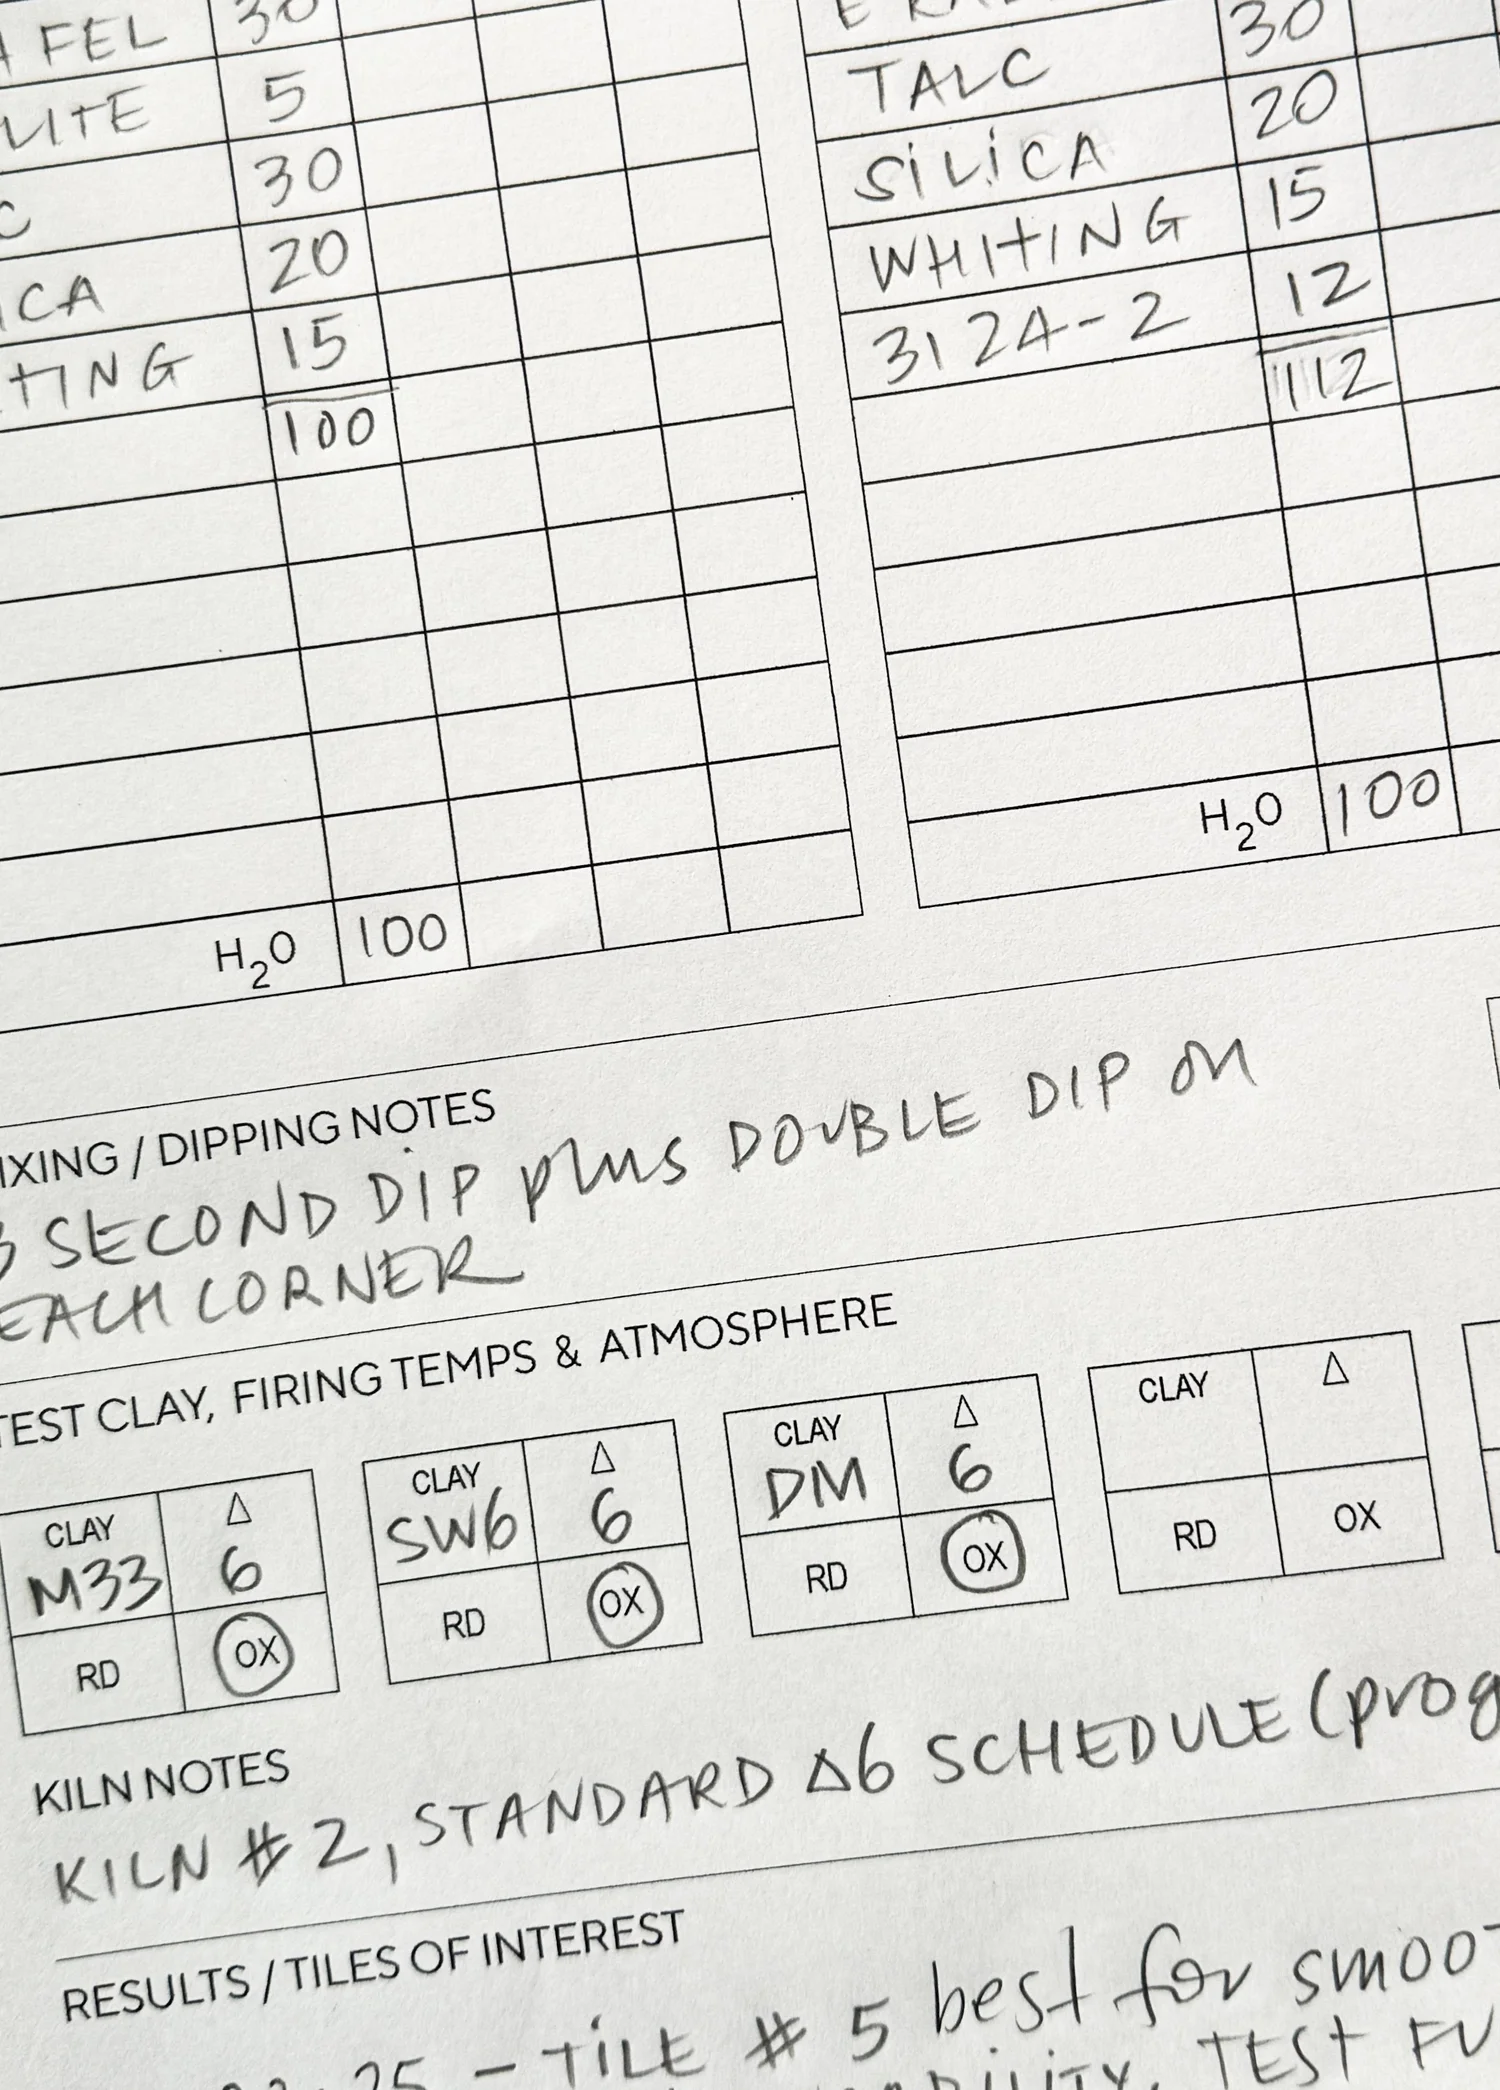 FEL 30
LITE 5
C 30
ICA 20
TING 15
100
H₂O 100
TALC 30
SILICA 20
WHITING 15
3124-2 12
112
H₂O 100
IXING / DIPPING NOTES
3 SECOND DIP plus DOUBLE DIP ON
EACH CORNER
TEST CLAY, FIRING TEMPS & ATMOSPHERE
CLAY Δ
M33 6
RD OX
CLAY Δ
SW6 6
RD OX
CLAY Δ
DM 6
RD OX
CLAY Δ
RD OX
KILN NOTES
KILN #2, STANDARD Δ6 SCHEDULE (prog
RESULTS / TILES OF INTEREST
25 - TILE # 5 best for smoo
TEST FU